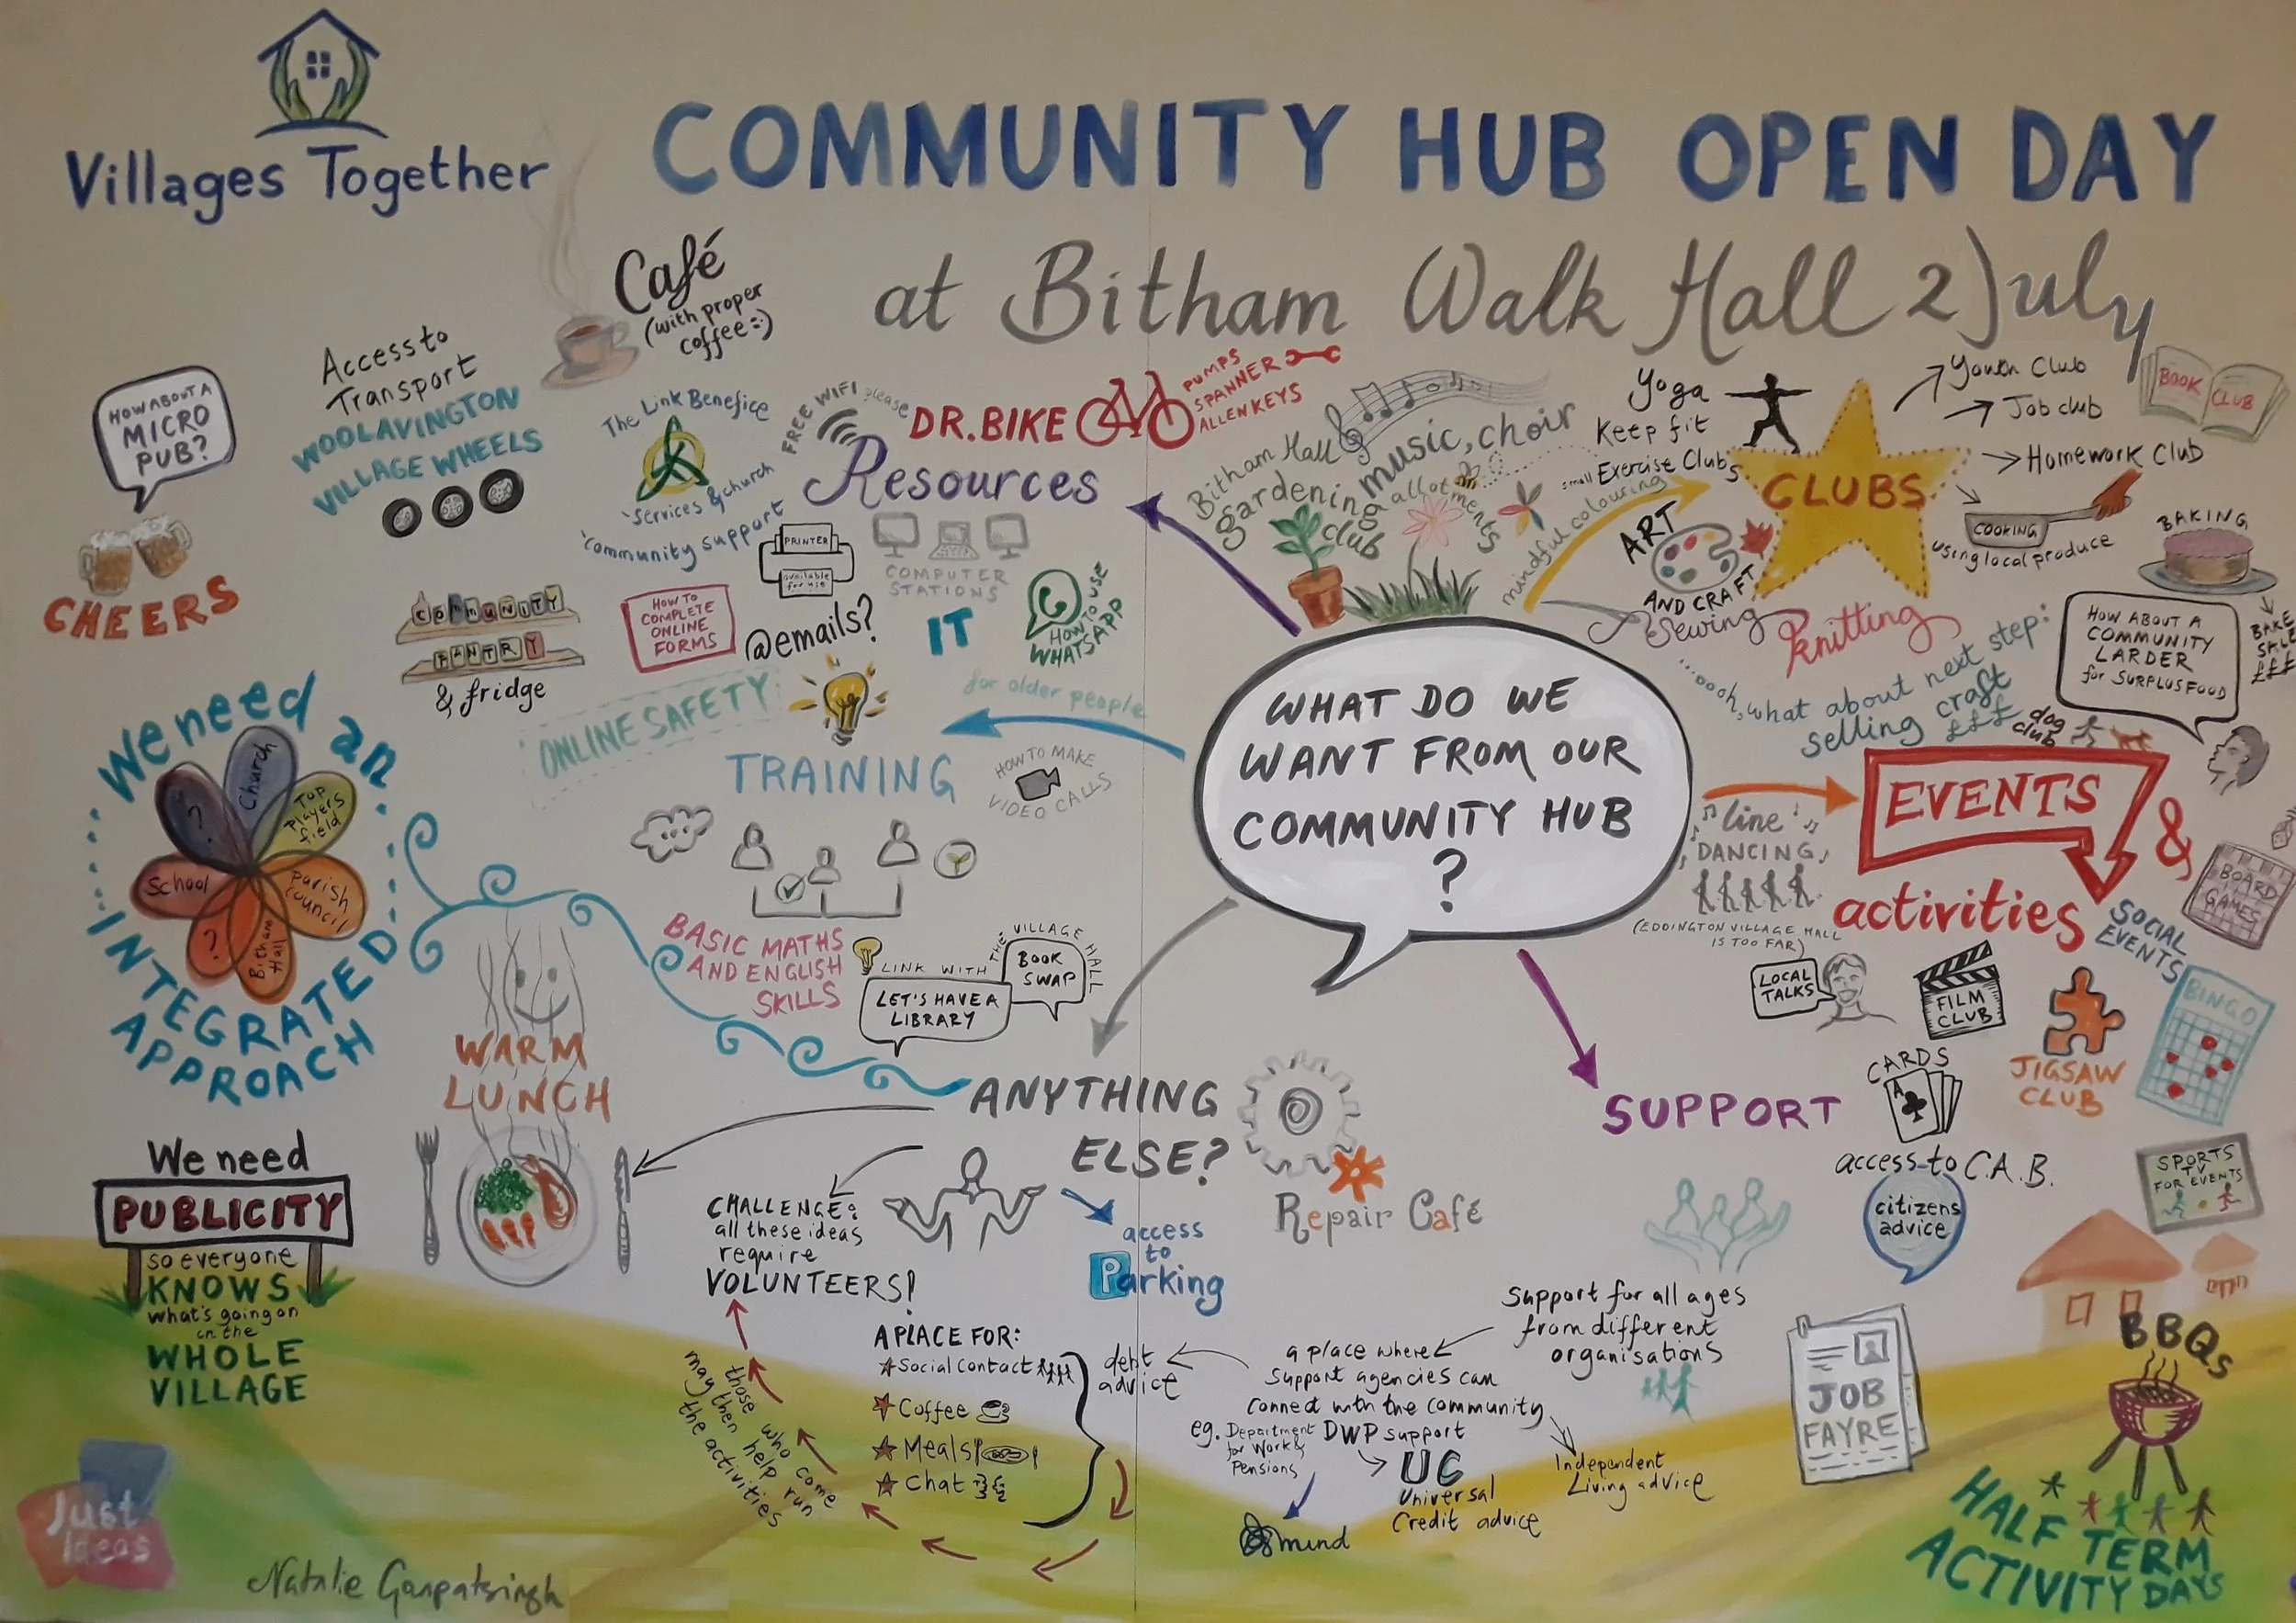 Villages Together
COMMUNITY HUB OPEN DAY
at Bitham Walk Hall 2 July
HOW ABOUT A
MICRO
PUB?
CHEERS
Access to
Transport
WOOLAVINGTON
VILLAGE WHEELS
Café
(with proper
coffee :)
The Link Benefice
'Services & church
'community support
FREE WIFI please
DR. BIKE
PUMPS
SPANNER
ALLEN KEYS
Resources
PRINTER
available
for use
COMPUTER
STATIONS
COMMUNITY
PANTRY
& fridge
HOW TO
COMPLETE
ONLINE
FORMS
@emails?
IT
HOW TO USE
WHATSAPP
ONLINE SAFETY
for older people
TRAINING
HOW TO MAKE
VIDEO CALLS
BASIC MATHS
AND ENGLISH
SKILLS
LINK WITH THE VILLAGE HALL
BOOK
SWAP
LET'S HAVE A
LIBRARY
Bitham Hall
gardening
club
allotments
music, choir
WHAT DO WE
WANT FROM OUR
COMMUNITY HUB
?
Yoga
Keep fit
small Exercise Clubs
mindful colouring
CLUBS
Youth Club
Job club
Homework Club
BOOK CLUB
COOKING
using local produce
BAKING
BAKE
SALE
£££
ART
AND CRAFT
Sewing
Knitting
....oooh, what about next step:
selling craft
£££
dog
club
HOW ABOUT A
COMMUNITY
LARDER
for SURPLUS FOOD
EVENTS
&
activities
line
DANCING
(EDDINGTON VILLAGE HALL
IS TOO FAR)
SOCIAL
EVENTS
BOARD
GAMES
LOCAL
TALKS
FILM
CLUB
JIGSAW
CLUB
BINGO
CARDS
A
SPORTS
TV
FOR EVENTS
BBQs
HALF TERM
ACTIVITY DAYS
SUPPORT
access to C.A.B.
citizens
advice
JOB
FAYRE
Support for all ages
from different
organisations
a place where
support agencies can
connect with the community
eg. Department
for Work &
Pensions
DWP support
UC
Universal
Credit advice
Independent
Living advice
debt
advice
mind
ANYTHING
ELSE?
Repair Café
access
to
Parking
CHALLENGE:
all these ideas
require
VOLUNTEERS!
A PLACE FOR:
Social contact
Coffee
Meals
Chat
those who come
may then help run
the activities
WARM
LUNCH
We need an
INTEGRATED
APPROACH
Church
Top
Players
field
Parish
Council
Bitham
Hall
?
School
?
We need
PUBLICITY
so everyone
KNOWS
what's going on
in the
WHOLE
VILLAGE
Just
Ideas
Natalie Ganpatsingh